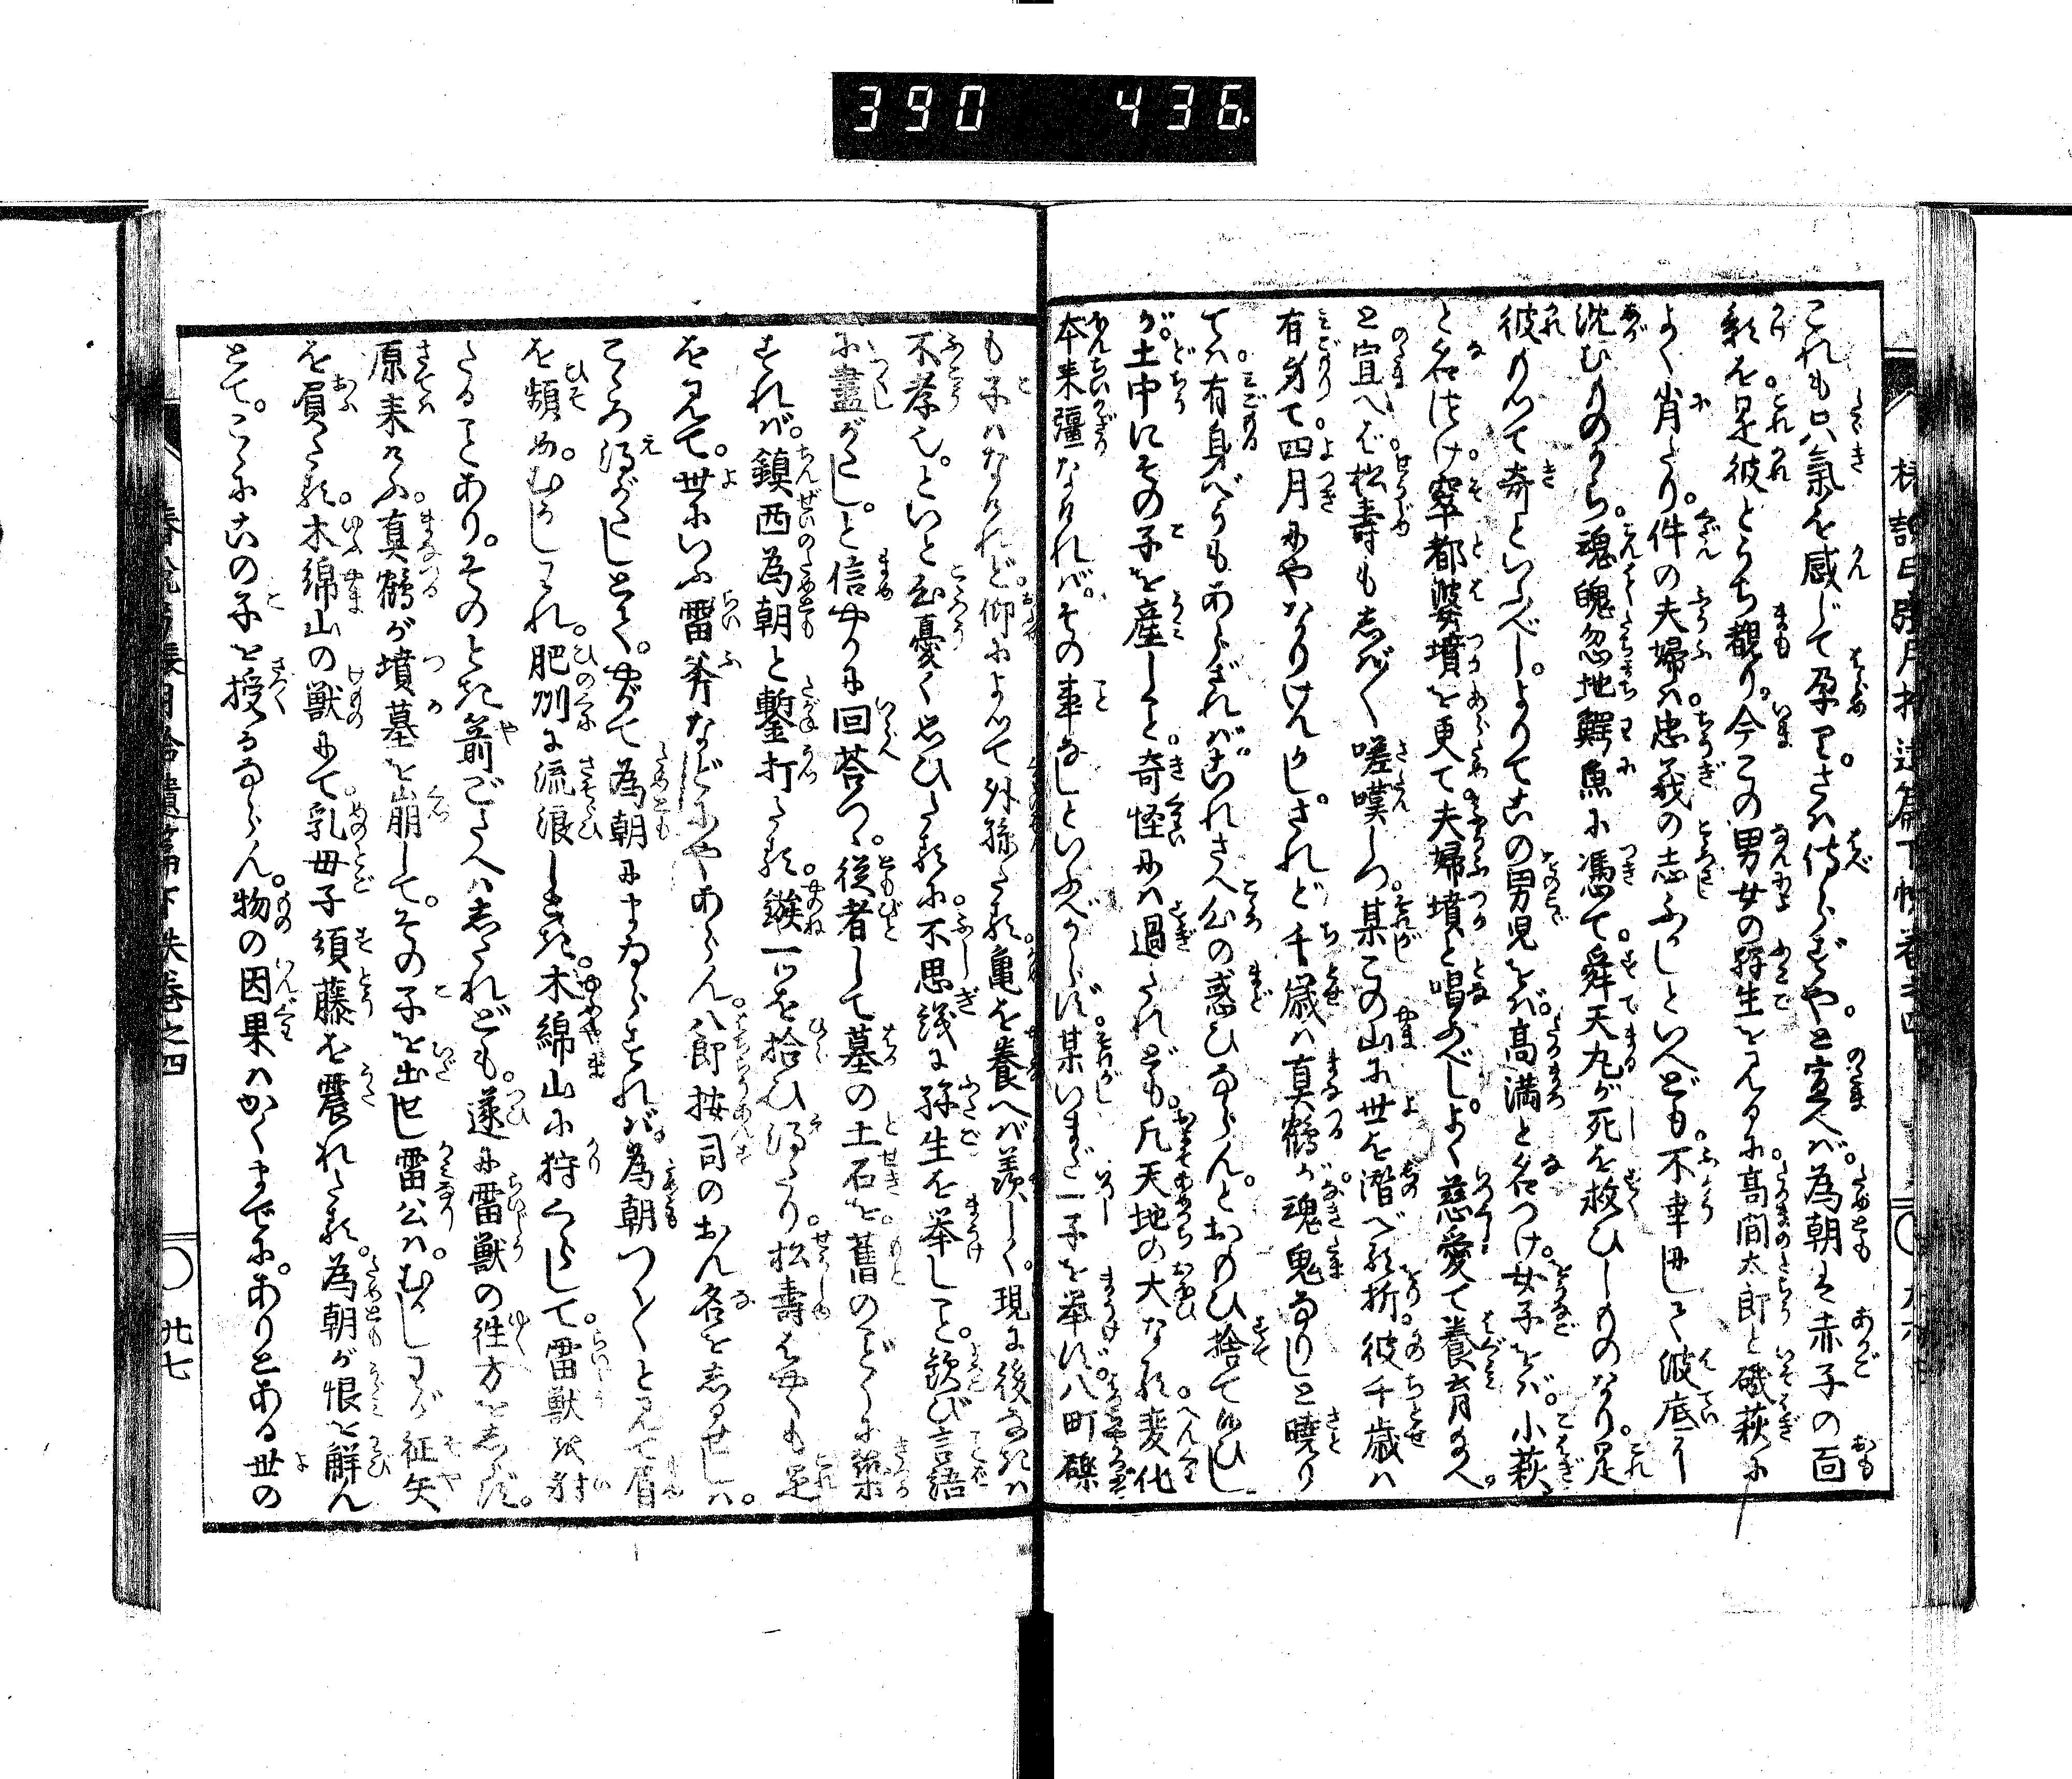 390 436
これも只氣を感じて孕り。さは侍らずやと宣へば。為朝は赤子の面
影を是彼とうち覩り。今この男女の孖生を見るに高間太郎と磯萩に
よく肖たり。件の夫婦は。忠義の志ふかしといへども。不幸にして波底に
沈むものから。魂魄忽地鰐魚に憑て。舜天丸が死を救ひしものなり。是
彼もつて奇といふべし。よりてこの男児をば。高満と名つけ。女子をば。小萩
と名つけ。窣都婆墳を更て。夫婦墳と唱ふべし。よく慈愛て養育給へ。
と宣へば。松壽もしば〱嗟嘆しつ。某この山に世を潜べる折。彼千歳は
有身て。四月にやなりけんかし。されど千歳は真鶴が魂鬼なりしと曉り
ては。有身べうもあらざれば。これさへ公の惑ひならん。とおもひ捨て候ひし
が。土中にその子を産しこと。奇怪には過たれども。凡天地の大なる変化
本来彊なければ。その事なしといふべからず。某いまだ一子を挙ず。八町礫
も子はなけれど。仰によつて外孫たる。亀を養へば羨しく。現に後なきは
不孝也。といと心憂く思ひたるに。不思議に孖生を挙しこと。歓び言語
に盡がたし。と信やかに回荅つゝ。従者して墓の土石を。舊のごとくに築
すれば。鎮西為朝と鏨打たる。鏃一つを拾ひ得たり。松壽はやくも是
を見て。世にいふ雷斧などにやあらん。八郎按司のおん名をしるせしは。
こゝろ得がたしとて。やがて為朝にまゐらすれば。為朝つく〲と見て眉
を頻め。むかしわれ。肥州に流浪しとき。木綿山に狩くらして。雷獣を射
たることあり。そのとき箭ごたへはしたれども。遂に雷獣の往方をしらず。
原来けふ。真鶴が墳墓を崩して。その子を出せし雷公は。むかしわが征矢
を負たる。木綿山の獣にて。乳母子須藤を震れたる。為朝が恨を觧ん
とて。こゝにこの子を授るならん。物の因果はかくまでに。ありとある世の
之四
〇 九七